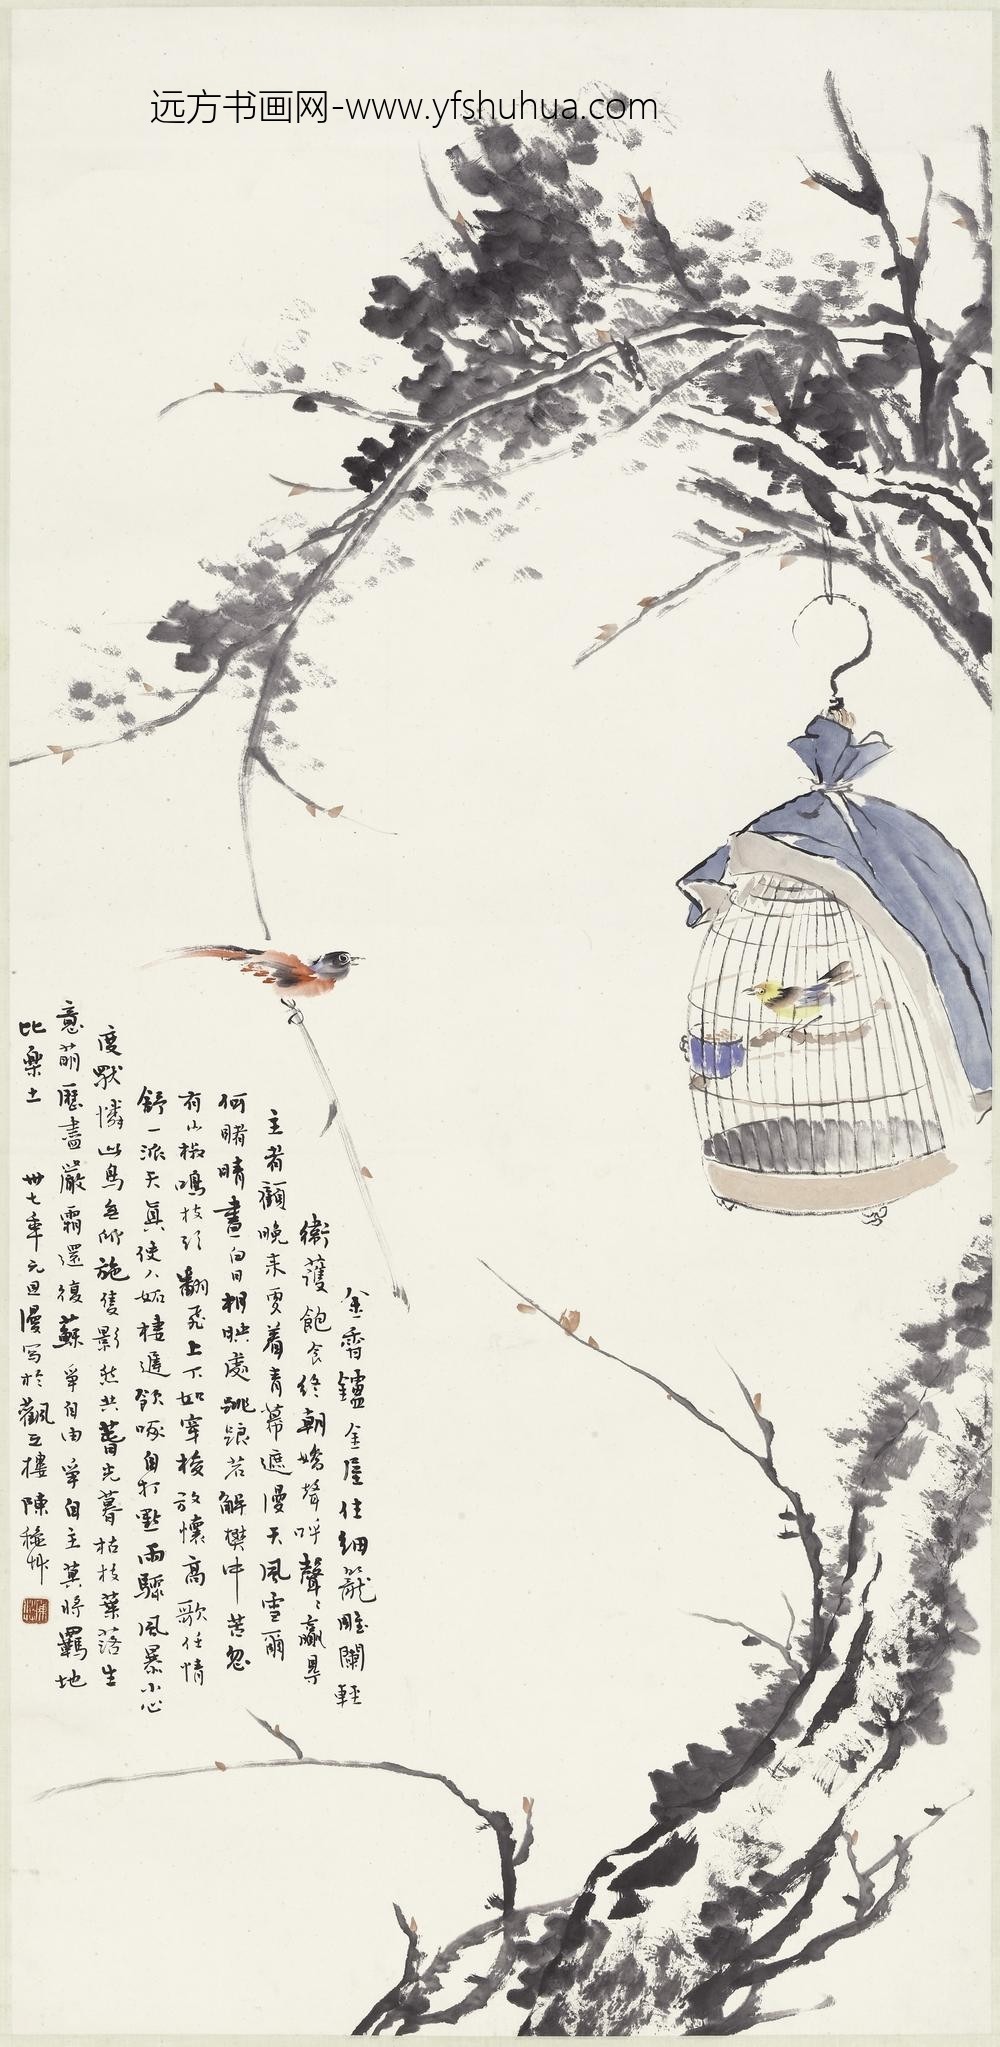 远方书画网-www.yfshuhua.com
金香鑪金屋住細籠雕闌輕
衞護飽食終朝嬌聲呼聲聲贏得
主者顧晚來更着青幕遮漫天風雪爾
何睹晴晝白日相映處跳踉若解樊中苦忽
有山椒鳴枝頭翻飛上下如穿梭放懷高歌任情
舒一派天真使人妬棲遲飲啄自打點雨驟風暴小心
度默憐此鳥無所施隻影然共蓍光暮枯枝葉落生
意萌歷盡嚴霜還復蘇爭自由爭自主莫將羈地
比樂土 卅七年元旦漫写於 樓 陳